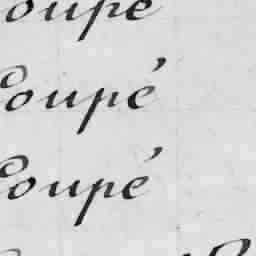 Coupé
Coupé
Coupé